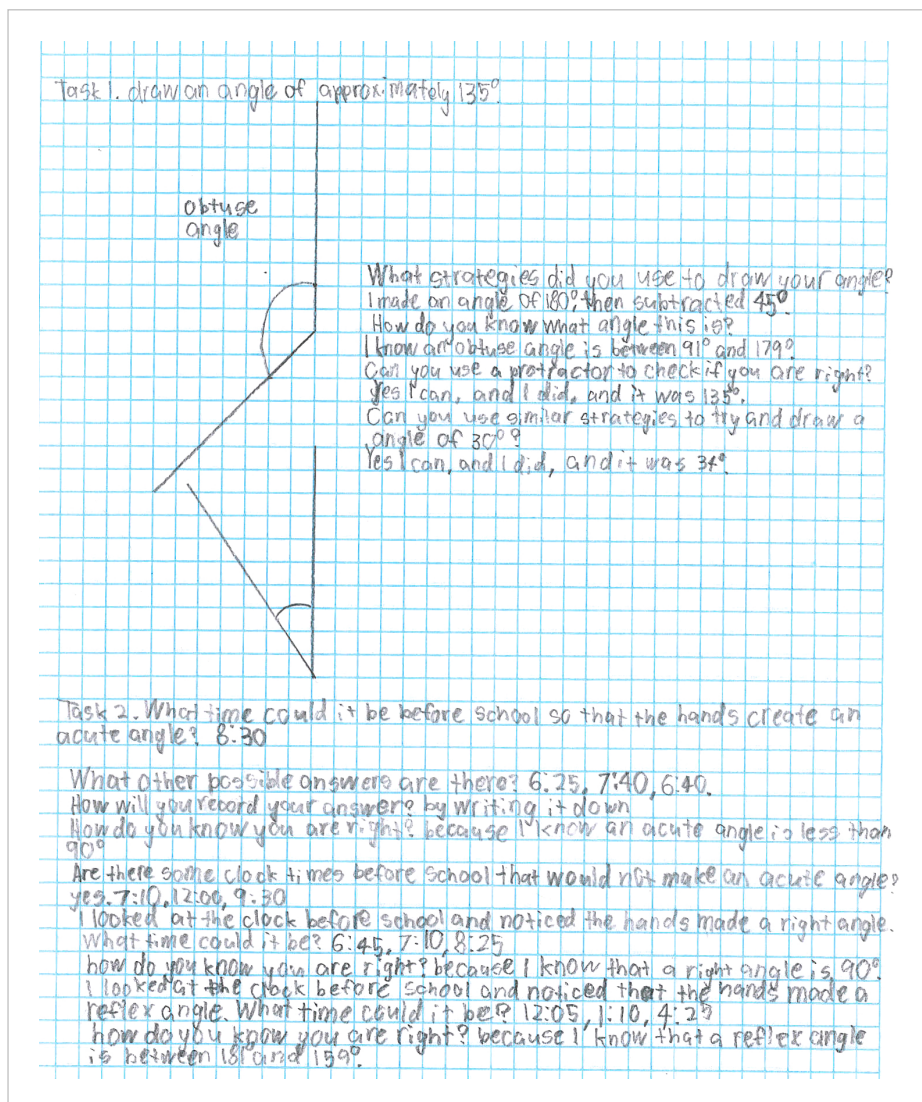 Task 1. draw an angle of approximately 135°.
obtuse
angle
What strategies did you use to draw your angle?
I made an angle of 180°, then subtracted 45°
How do you know what angle this is?
I know an obtuse angle is between 91° and 179°.
Can you use a protractor to check if you are right?
Yes I can, and I did, and it was 135°.
Can you use similar strategies to try and draw a
angle of 30°?
Yes I can, and I did, and it was 34°.
Task 2. What time could it be before school so that the hands create an
acute angle? 8:30
What other possible answers are there? 6:25, 7:40, 6:40.
How will you record your answer? by writing it down
How do you know you are right? because I know an acute angle is less than
90°
Are there some clock times before school that would not make an acute angle?
yes. 7:10, 12:00, 9:30
I looked at the clock before school and noticed the hands made a right angle.
What time could it be? 6:45, 7:10, 8:25
how do you know you are right? because I know that a right angle is 90°.
I looked at the clock before school and noticed that the hands made a
reflex angle. What time could it be? 12:05, 1:10, 4:25
how do you know you are right? because I know that a reflex angle
is between 181 and 159°.